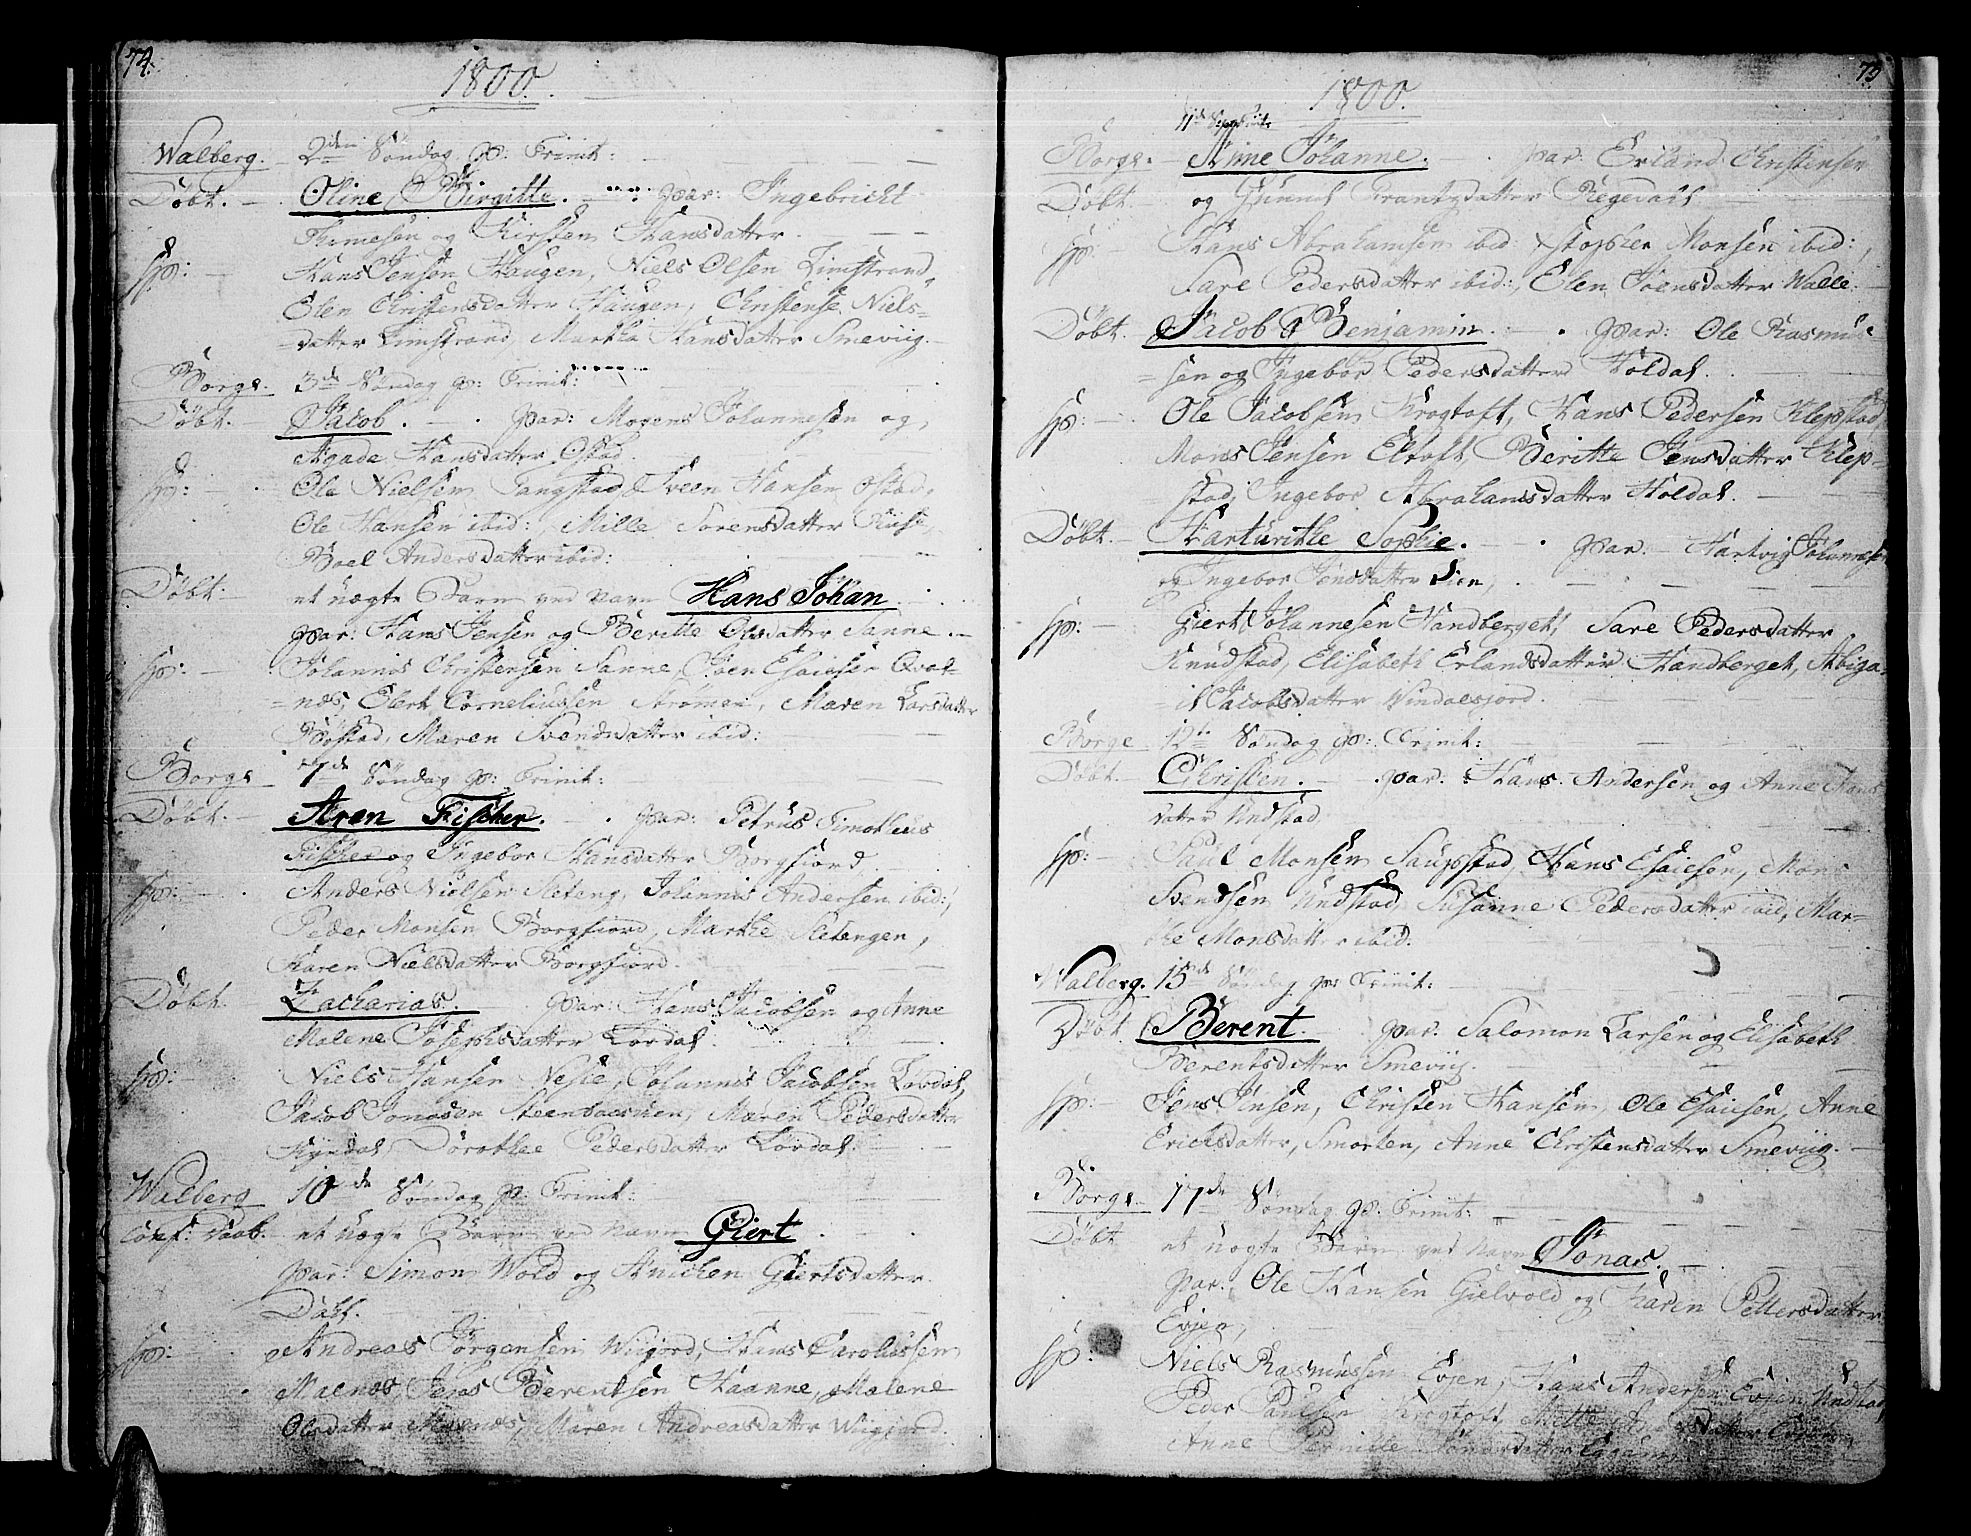 74.
1800.
Walberg. 2den Søndag p: Trinit:
Døbt. Oline Birgitte. par: Ingebricht
Thomesen og Kirsten Hansdatter.
sp: Hans Jensen Haugen, Niels Olsen Limstrand,
Elen Christensdatter Haugen, Christense Niels-
datter Limstrand, Martha Hansdatter Smeviig.
Borge. 3de Søndag p: Trinit:
Døbt. Jacob. par: Mogens Johannesen og
Agade Hansdatter Ostad.
sp: Ole Nielsen Tangstad, Sveen Hansen Ostad,
Ole Hansen ibid:, Mille Sørensdatter
Boel Andersdatter ibid:
Døbt. et uægte Barn ved navn Hans Johan
par: Hans Jensen og Beritte Olsdatter Sanne.
sp: Johannis Christensen Sanne, Joen Esaiesen Qval-
næs, Elert Corneliussen Strømen, Maren Larsdatter
Bøstad, Maren Svendsdatter ibid:
Borge 7de Søndag p: Trinit:
Døbt. Aren Fischer. par: Petrus Timotheus
Fischer og Ingebor Hansdatter Borgfiord
sp: Anders Nielsen Sleteng, Johannis Andersen ibid:,
Peder Monsen Borgfiord, Marthe Sletengen,
Karen Nielsdatter Borgfiord.
Døbt. Zacharias. par: Hans Jacobsen og Anne
Malene Josephsdatter Lovdal.
sp: Niels Hansen Vesle, Johannis Jacobsen Lovdal,
Jacob Jonasen Steenbachen, Maren Pedersdatter
Kyndal, Dorothee Pedersdatter Lovdal.
Walberg 10de Søndag p: Trinit:
Conf: Daab. et uægte Barn ved navn Giert.
par: Simon Wold og Anichen Giertsdatter
Dahl.
sp: Andreas Jørgensen Wiigjord, Hans Caroliussen
Malnæs, Jens Berentsen Haanne, Malene
Olsdatter Malnæs, Maren Andreasdatter Wiigjord.
75
1800.
11de Søndag p: Trinit:
Borge. Anne Johanne. par: Erland Christensen
Døbt. og Gunnil Frantzdatter Regedahl
sp: Hans Abrahamsen ibid: Stopher Monsen ibid:,
Sare Pedersdatter ibid:, Elen Joensdatter Walle.
Døbt. Jacob Benjamin. par: Ole Rasmus-
sen og Ingebor Pedersdatter Holdal.
sp: Ole Jacobsen Krogtoft, Hans Pedersen Klepstad,
Mons Jensen Eltoft, Beritte Jensdatter Klep-
stad, Ingebor Abrahamsdatter Holdal.
Døbt. Harturikke Sophie. par: Hartvig Johannesen
og Ingebor Jensdatter Lien,
sp: Giert Johannesen Handberget, Sare Pedersdatter
Knudstad, Elisabeth Erlandsdatter Handberget, Abiga-
il Jacobsdatter Windalsjord.
Borge 12te Søndag p: Trinit:
Døbt. Christen. par: Hans Andersen og Anne Hans
datter Undstad.
sp: Paul Monsen Saupstad, Hans Esaiesen, Mons
Svendsen Undstad, Susanne Pedersdatter ibid, Mar-
the Monsdatter ibid.
Walberg. 15de Søndag p: Trinit:
Døbt Berent. par: Salomon Larsen og Elisabeth
Berentsdatter Smeviig.
sp: Jens Jensen, Christen Hansen, Ole Esaiesen, Anne
Ericksdatter, Smorten, Anne Christensdatter Smeviig.
Borge. 17de Søndag p: Trinit:
Døbt et uægte Barn ved navn Jonas.
par: Ole Hansen Gielvold og Karen Pettersdatter
Evjen,
sp: Niels Rasmussen Evjen, Hans Andersen Undstad,
Peder Paulsen Krogtoft, Mette
Anne Pernille Jonasdatter